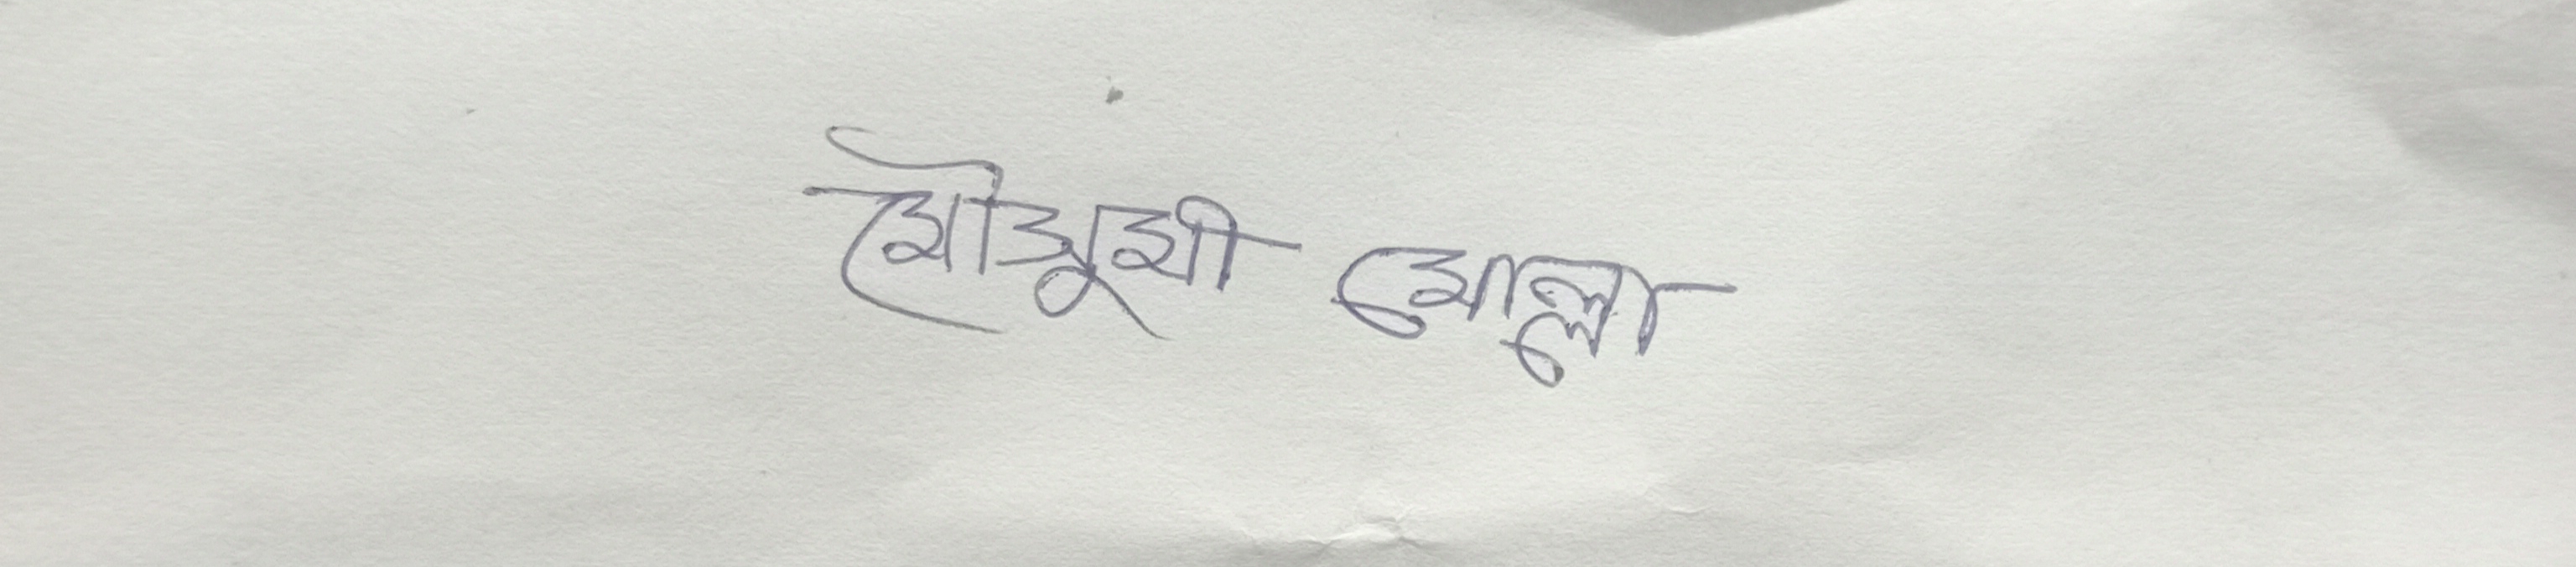 মৌসুমী মোল্লা